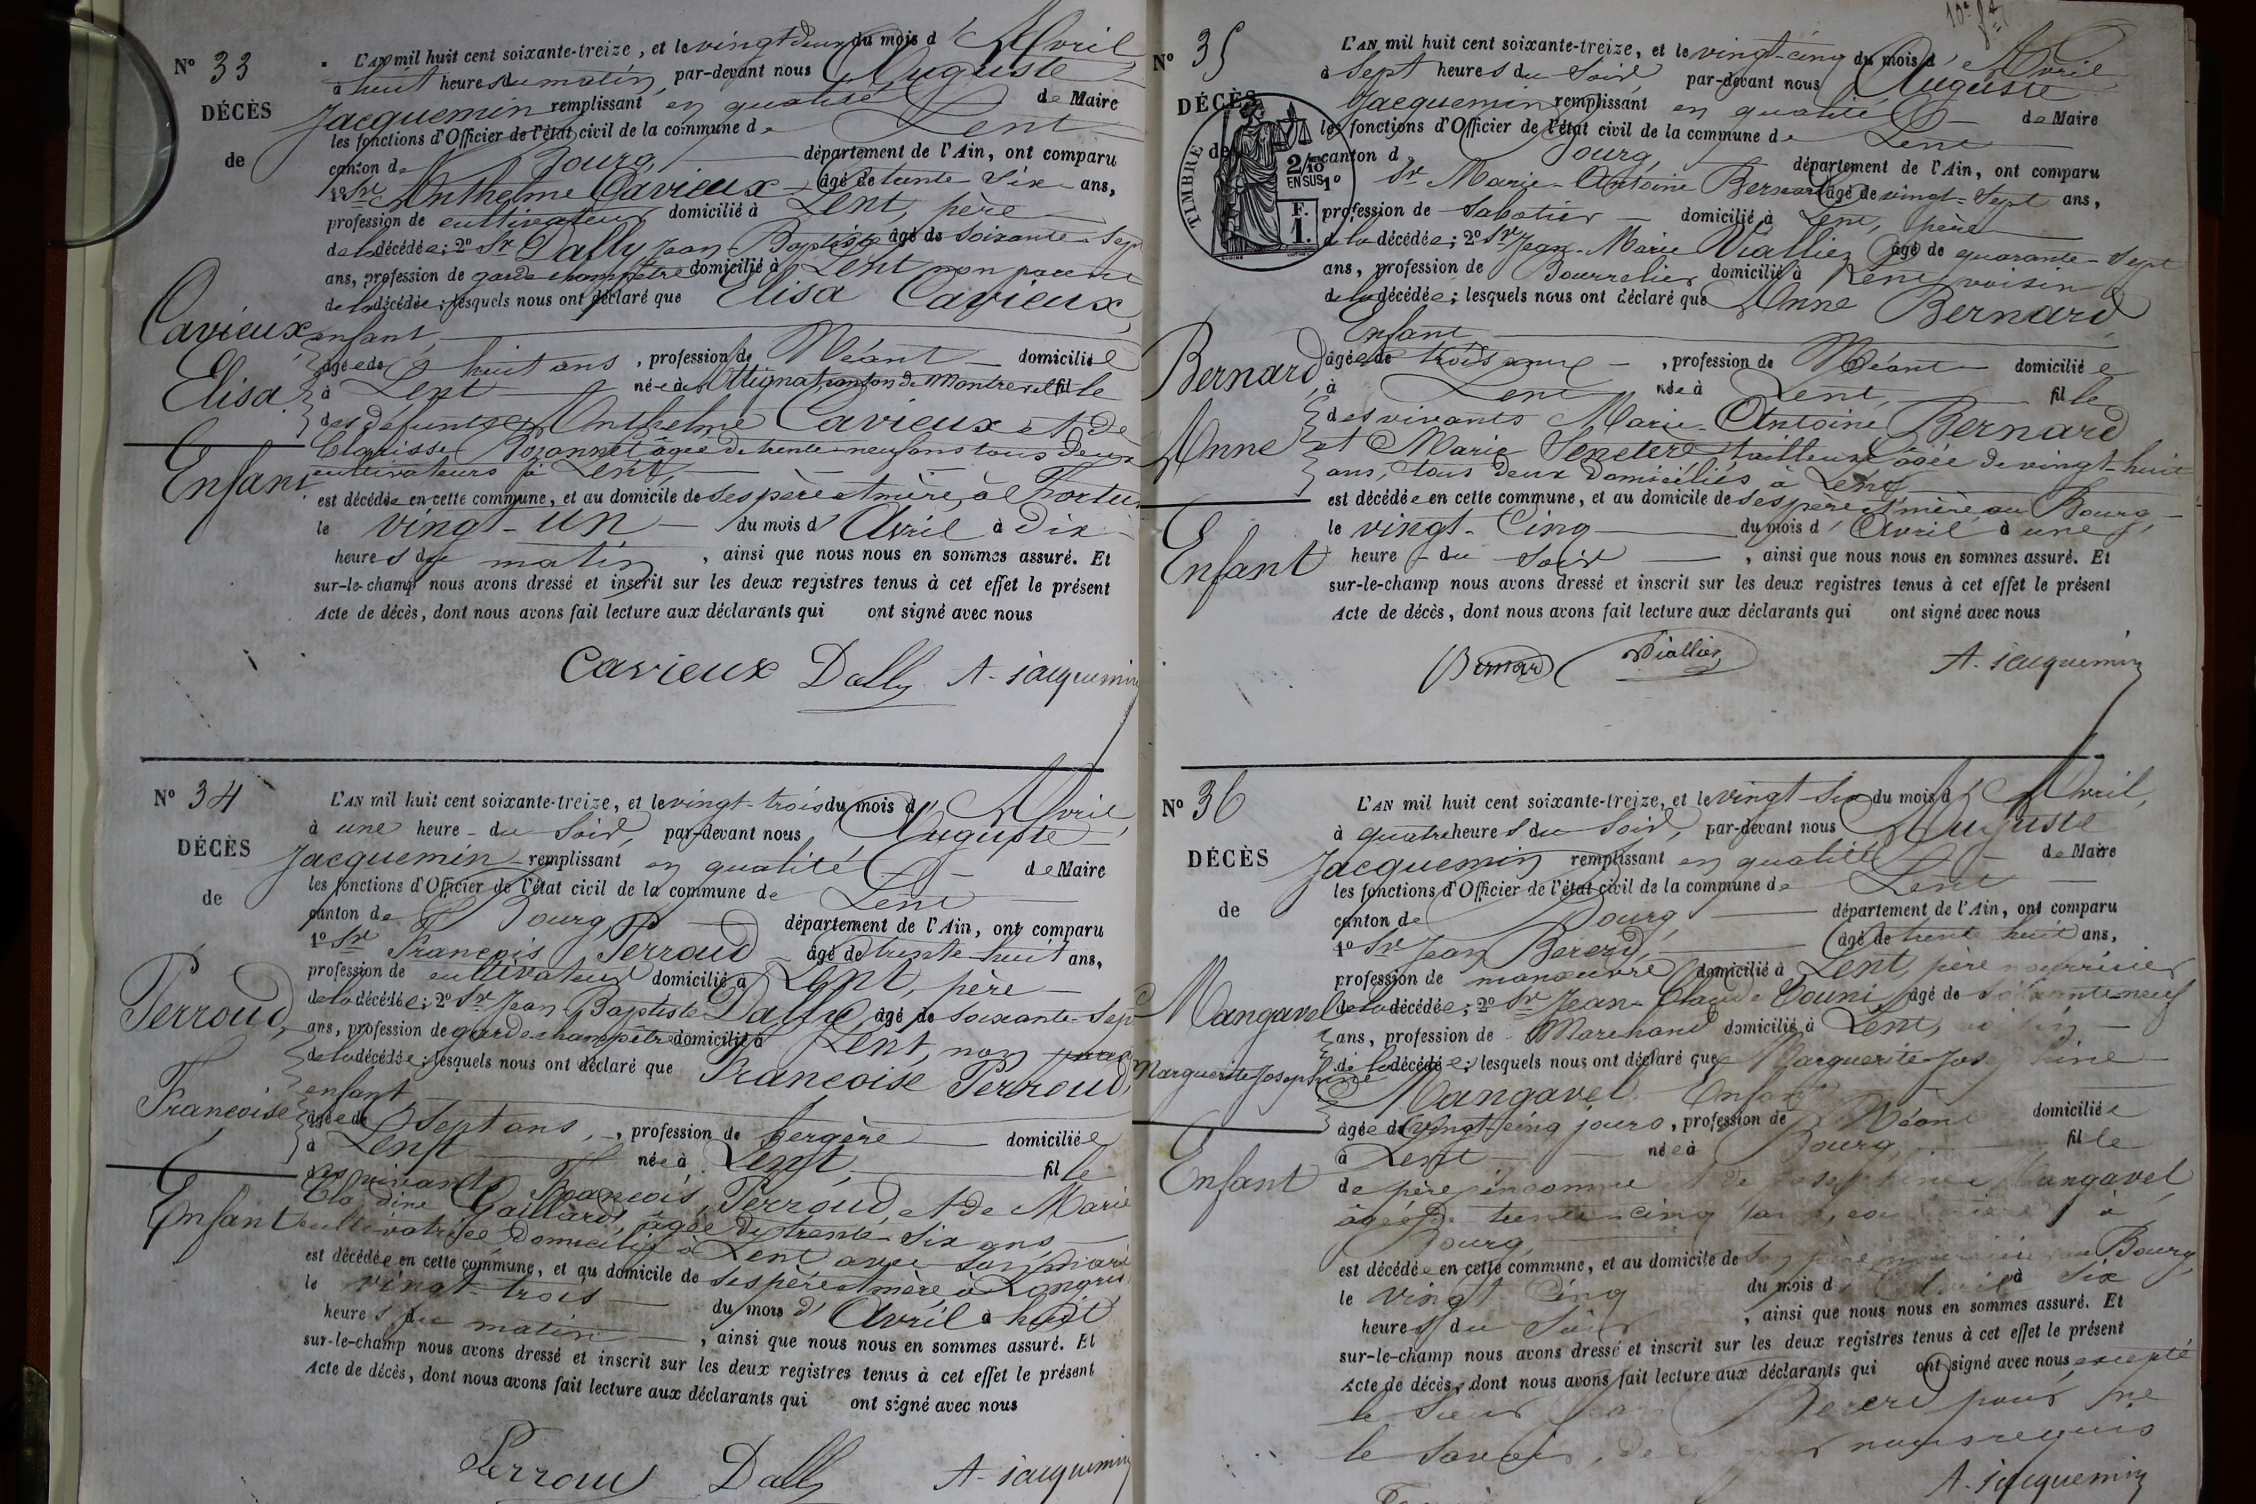 N° 33
DÉCÈS
de
Cavieux
Elisa
Enfant
L'AN mil huit cent soixante-treize, et le vingt deux du mois d'Avril,
à huit heures du matin, par-devant nous Auguste
Jacquemin remplissant en qualité de Maire
les fonctions d'Officier de l'état civil de la commune de Lent
canton de Bourg, département de l'Ain, ont comparu
1° Sr Anthelme Cavieux âgé de trente six ans,
profession de cultivateur domicilié à Lent, père
de la décédée; 2° Sr Dally Jean Baptiste âgé de soixante-sept
ans, profession de garde champêtre domicilié à Lent non parent
de la décédée; lesquels nous ont déclaré que Elisa Cavieux,
enfant,
âgée de huit ans, profession de Néant domiciliée
à Lent née à Attignat canton de Montrevel fille
des Anthelme Cavieux et de
Clarisse Rozonnet âgée de trente-neuf ans tous deux
cultivateurs à Lent,
est décédée en cette commune, et au domicile de ses père et mère, à
le vingt-un du mois d'Avril à dix
heures du matin, ainsi que nous nous en sommes assuré. Et
sur-le-champ nous avons dressé et inscrit sur les deux registres tenus à cet effet le présent
Acte de décès, dont nous avons fait lecture aux déclarants qui ont signé avec nous
Cavieux Dally A. Jacquemin
N° 34
DÉCÈS
de
Perroud,
Françoise
Enfant
L'AN mil huit cent soixante-treize, et le vingt-trois du mois d'Avril,
à une heure du Soir, par-devant nous Auguste
Jacquemin remplissant en qualité de Maire
les fonctions d'Officier de l'état civil de la commune de Lent
canton de Bourg, département de l'Ain, ont comparu
1° Sr François Perroud âgé de trente-huit ans,
profession de cultivateur domicilié à Lent, père
de la décédée; 2° Sr Jean Baptiste Dally, âgé de soixante-sept
ans, profession de garde champêtre domicilié à Lent, non parent
de la décédée; lesquels nous ont déclaré que Françoise Perroud,
enfant
âgée de Sept ans, profession de bergère domiciliée
à Lent née à Lent, fille
des vivants François Perroud, et de Marie
Claudine Gaillard, âgée de trente-six ans,
cultivatrice domiciliée à Lent avec son mari
est décédée en cette commune, et au domicile de ses père et mère, à
le vingt-trois du mois d'Avril à huit
heures du matin, ainsi que nous nous en sommes assuré. Et
sur-le-champ nous avons dressé et inscrit sur les deux registres tenus à cet effet le présent
Acte de décès, dont nous avons fait lecture aux déclarants qui ont signé avec nous
Perroud Dally A. Jacquemin
N° 35
DÉCÈS
de
TIMBRE
2/10
EN SUS
F.
1.
Bernard,
Anne
Enfant
L'AN mil huit cent soixante-treize, et le vingt-cinq du mois d'Avril
à Sept heures du Soir par-devant nous Auguste
Jacquemin remplissant en qualité de Maire
les fonctions d'Officier de l'état civil de la commune de Lent
canton de Bourg, département de l'Ain, ont comparu
1° Sr Marie-Antoine Bernard âgé de vingt-sept ans,
profession de Sabotier domicilié à Lent, père
de la décédée; 2° Sr Jean-Marie Vialliez âgé de quarante-sept
ans, profession de Bourrelier domicilié à Lent voisin
de la décédée; lesquels nous ont déclaré que Anne Bernard
Enfant
âgée de trois ans, profession de Néant domiciliée
à Lent née à Lent, fille
des vivants Marie-Antoine Bernard
et Marie tailleuse âgée de vingt-huit
ans, tous deux domiciliés à Lent
est décédée en cette commune, et au domicile de ses père et mère au Bourg
le vingt-cinq du mois d'Avril à une
heure du Soir, ainsi que nous nous en sommes assuré. Et
sur-le-champ nous avons dressé et inscrit sur les deux registres tenus à cet effet le présent
Acte de décès, dont nous avons fait lecture aux déclarants qui ont signé avec nous
Bernard Viallier A. Jacquemin
N° 36
DÉCÈS
de
Mangavel
Marguerite Josephine
Enfant
L'AN mil huit cent soixante-treize, et le vingt-six du mois d'Avril,
à quatre heures du Soir, par-devant nous Auguste
Jacquemin remplissant en qualité de Maire
les fonctions d'Officier de l'état civil de la commune de Lent
canton de Bourg, département de l'Ain, ont comparu
1° Sr Jean Bererd, âgé de trente huit ans,
profession de manœuvre domicilié à Lent, père nourricier
de la décédée; 2° Sr Jean-Claude Couni âgé de soixante-neuf
ans, profession de Marchand domicilié à Lent, voisin
de la décédée; lesquels nous ont déclaré que Marguerite Josephine
Mangavel Enfant
âgée de vingt-cinq jours, profession de Néant domiciliée
à Lent née à Bourg, fille
de père inconnu et de Josephine Mangavel,
âgée de trente-cinq ans, à
Bourg,
est décédée en cette commune, et au domicile de son père nourricier au Bourg,
le vingt cinq du mois d'Avril à six
heures du Soir, ainsi que nous nous en sommes assuré. Et
sur-le-champ nous avons dressé et inscrit sur les deux registres tenus à cet effet le présent
Acte de décès, dont nous avons fait lecture aux déclarants qui ont signé avec nous, excepté
le Sieur Bererd pour ne
le savoir, de nous requis
A. Jacquemin